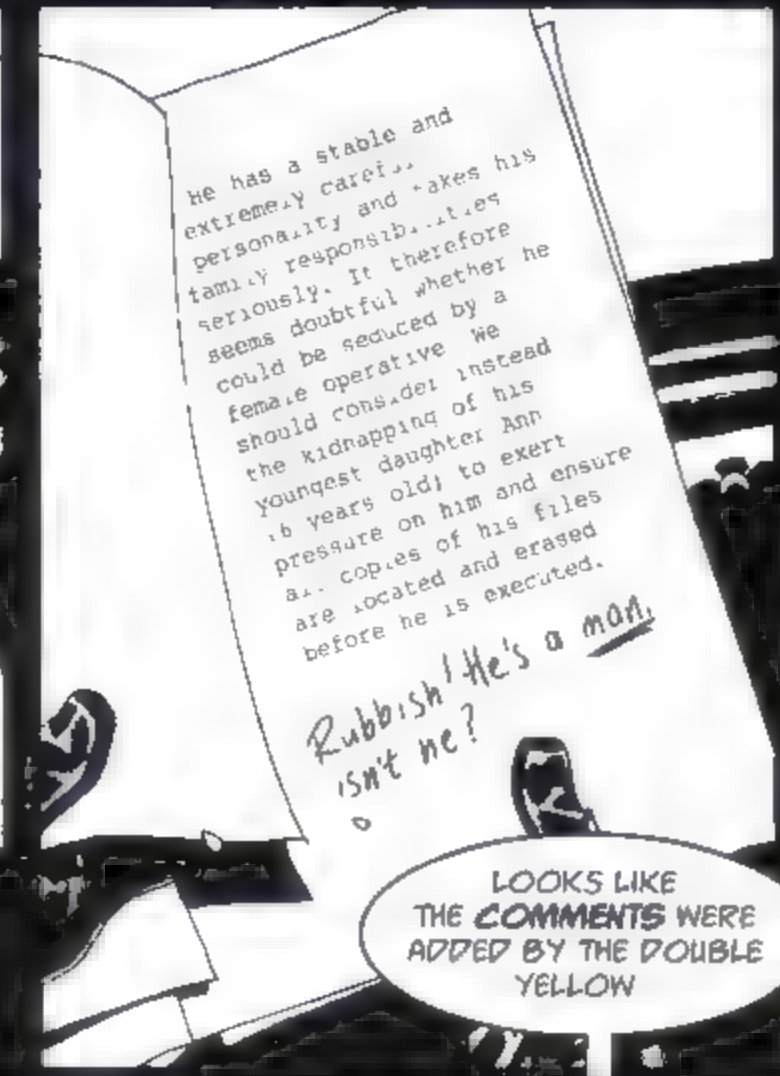 He has a stable and
extremely careful
personality and takes his
family responsibilities
seriously. It therefore
seems doubtful whether he
could be seduced by a
female operative We
should consider instead
the kidnapping of his
youngest daughter Ann
years old) to exert
pressure on him and ensure
all copies of his files
are located and erased
before he is executed.
Rubbish! He's a man,
isn't he?
LOOKS LIKE
THE COMMENTS WERE
ADDED BY THE DOUBLE
YELLOW